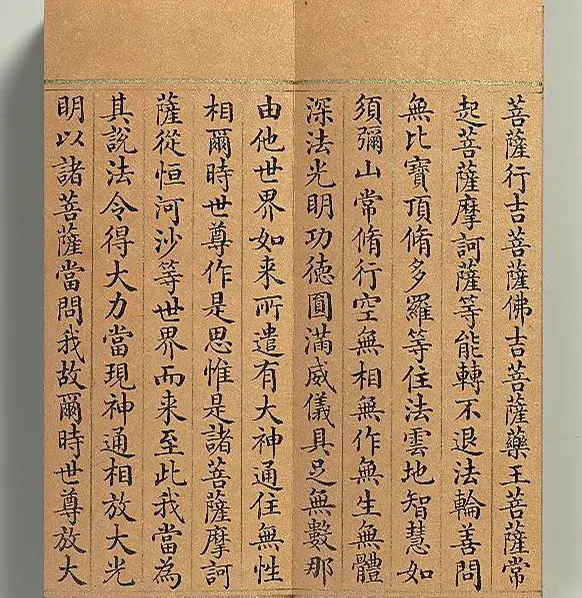 菩薩行吉菩薩佛吉菩薩藥王菩薩常
起菩薩摩訶薩等能轉不退法輪善問
無比寶頂脩多羅等住法雲地智慧如
須彌山常脩行空無相無作無生無體
深法光明功德圓滿威儀具足無數那
由他世界如来所遣有大神通住無性
相爾時世尊作是思惟是諸菩薩摩訶
薩從恒河沙等世界而来至此我當為
其說法令得大力當現神通相放大光
明以諸菩薩當問我故爾時世尊放大